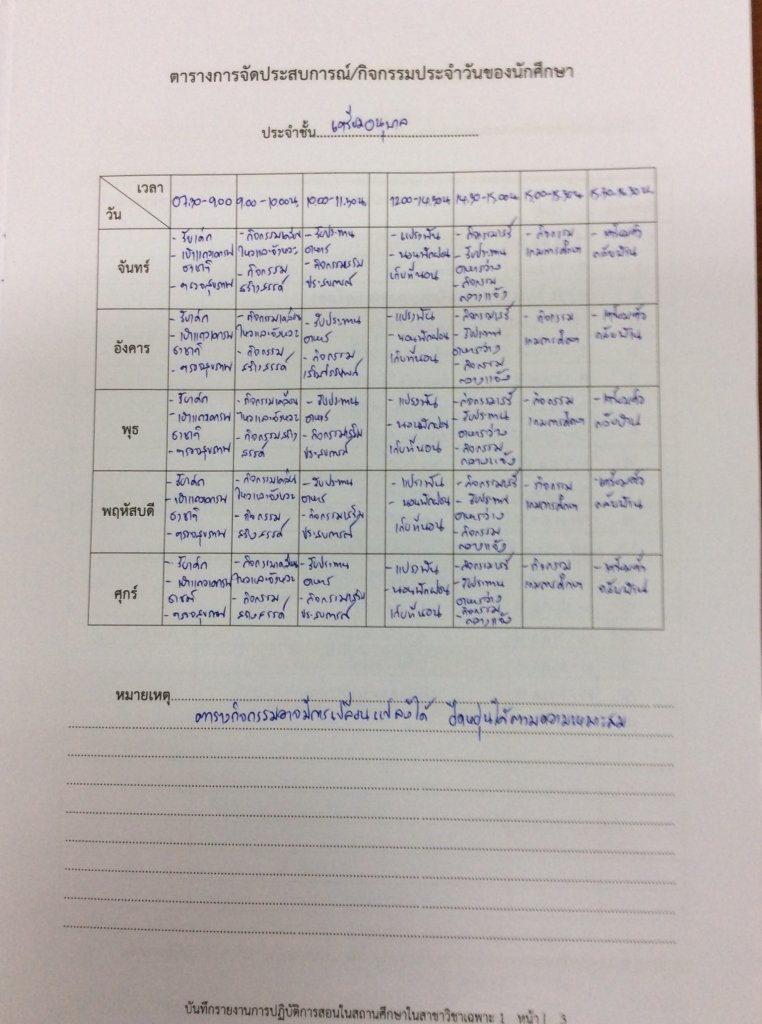 ตารางการจัดประสบการณ์/กิจกรรมประจำวันของนักศึกษา
ประจำชั้น เตรียมอนุบาล
เวลา
วัน
07.30-9.00 9.00-10.00น. 10.00-11.30น. 12.00-14.30น. 14.30-15.00น. 15.00-15.30น. 15.30-16.30น.
จันทร์
- รับเด็ก
- เข้าแถวเคารพ
ธงชาติ
- ตรวจสุขภาพ
- กิจกรรมเคลื่อน
ไหวและจังหวะ
- กิจกรรม
สร้างสรรค์
- รับประทาน
อาหาร
- กิจกรรมเสริม
ประสบการณ์
- แปรงฟัน
- นอนพักผ่อน
เก็บที่นอน
- กิจกรรมเสรี
- รับประทาน
อาหารว่าง
- กิจกรรม
กลางแจ้ง
- กิจกรรม
เกมการศึกษา
- เตรียมตัว
กลับบ้าน
อังคาร
- รับเด็ก
- เข้าแถวเคารพ
ธงชาติ
- ตรวจสุขภาพ
- กิจกรรมเคลื่อน
ไหวและจังหวะ
- กิจกรรม
สร้างสรรค์
- รับประทาน
อาหาร
- กิจกรรม
- แปรงฟัน
- นอนพักผ่อน
เก็บที่นอน
- กิจกรรมเสรี
- รับประทาน
อาหารว่าง
- กิจกรรม
กลางแจ้ง
- กิจกรรม
เกมการศึกษา
- เตรียมตัว
กลับบ้าน
พุธ
- รับเด็ก
- เข้าแถวเคารพ
ธงชาติ
- ตรวจสุขภาพ
- กิจกรรมเคลื่อน
ไหวและจังหวะ
- กิจกรรมสร้าง
สรรค์
- รับประทาน
อาหาร
- กิจกรรมเสริม
ประสบการณ์
- แปรงฟัน
- นอนพักผ่อน
เก็บที่นอน
- กิจกรรมเสรี
- รับประทาน
อาหารว่าง
- กิจกรรม
กลางแจ้ง
- กิจกรรม
เกมการศึกษา
- เตรียมตัว
กลับบ้าน
พฤหัสบดี
- รับเด็ก
- เข้าแถวเคารพ
ธงชาติ
- ตรวจสุขภาพ
- กิจกรรมเคลื่อน
ไหวและจังหวะ
- กิจกรรม
สร้างสรรค์
- รับประทาน
อาหาร
- กิจกรรมเสริม
ประสบการณ์
- แปรงฟัน
- นอนพักผ่อน
เก็บที่นอน
- กิจกรรมเสรี
- รับประทาน
อาหารว่าง
- กิจกรรม
กลางแจ้ง
- กิจกรรม
เกมการศึกษา
- เตรียมตัว
กลับบ้าน
ศุกร์
- รับเด็ก
- เข้าแถวเคารพ
- ตรวจสุขภาพ
- กิจกรรมเคลื่อน
ไหวและจังหวะ
- กิจกรรม
สร้างสรรค์
- รับประทาน
อาหาร
- กิจกรรมเสริม
ประสบการณ์
- แปรงฟัน
- นอนพักผ่อน
เก็บที่นอน
- กิจกรรมเสรี
- รับประทาน
อาหารว่าง
- กิจกรรม
กลางแจ้ง
- กิจกรรม
เกมการศึกษา
- เตรียมตัว
กลับบ้าน
หมายเหตุ
ตารางกิจกรรมอาจมีการเปลี่ยนแปลงได้ ยืดหยุ่นได้ตามความเหมาะสม
บันทึกรายงานการปฏิบัติการสอนในสถานศึกษาในสาขาวิชาเฉพาะ 1 หน้า | 3